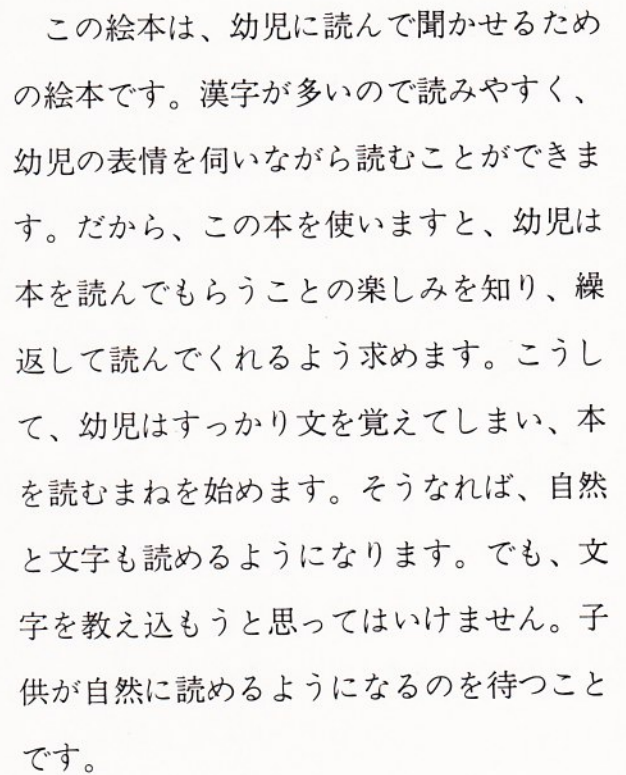 この絵本は、幼児に読んで聞かせるため
の絵本です。漢字が多いので読みやすく、
幼児の表情を伺いながら読むことができま
す。だから、この本を使いますと、幼児は
本を読んでもらうことの楽しみを知り、繰
返して読んでくれるよう求めます。こうし
て、幼児はすっかり文を覚えてしまい、本
を読むまねを始めます。そうなれば、自然
と文字も読めるようになります。でも、文
字を教え込もうと思ってはいけません。子
供が自然に読めるようになるのを待つこと
です。